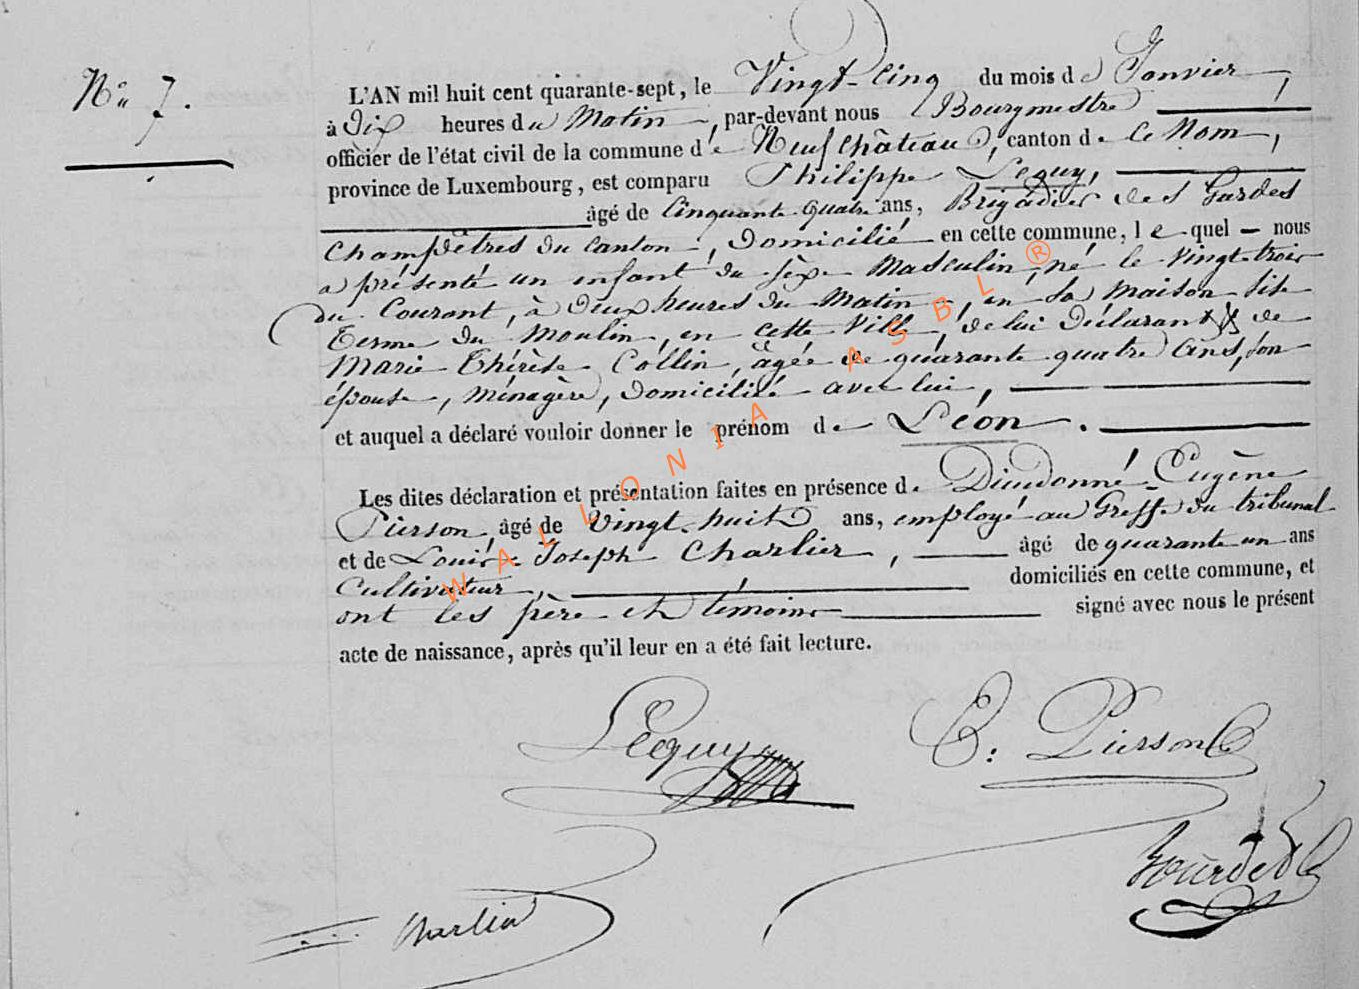 N° 7.
L'AN mil huit cent quarante-sept, le Vingt-Cinq du mois de Janvier,
à Dix heures du Matin, par-devant nous Bourgmestre
officier de l'état civil de la commune de Neufchâteau, canton de Ce Nom,
province de Luxembourg, est comparu Philippe Lequy,
âgé de Cinquante-quatre ans, Brigadier des Gardes
Champêtres du Canton, Domicilié en cette commune, lequel – nous
a présenté un enfant du sexe Masculin, né le Vingt-trois
du Courant, à Deux heures du Matin, en sa Maison sise
du Moulin, en cette Ville, de lui Déclarant & de
Marie Thérèse Collin, âgée de quarante quatre Ans, son
épouse, Ménagère, Domiciliée avec lui,
et auquel a déclaré vouloir donner le prénom de Léon.
Les dites déclaration et présentation faites en présence de Dieudonné Eugène
Pierson, âgé de Vingt-huit ans, employé au Greffe du tribunal
et de Louis Joseph Charlier, âgé de quarante un ans
Cultivateur, domiciliés en cette commune, et
ont les père et témoins signé avec nous le présent
acte de naissance, après qu'il leur en a été fait lecture.
Lequy
E. Pierson
Charlier
WALLONIA ASBL ®